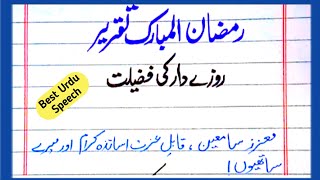 رمضان المبارک تقریر
روزے دار کی فضیلت
Best Urdu
Speech
معزز سامعین ، قابلِ عزت اساتذہ کرام اور میرے
ساتھیوں!